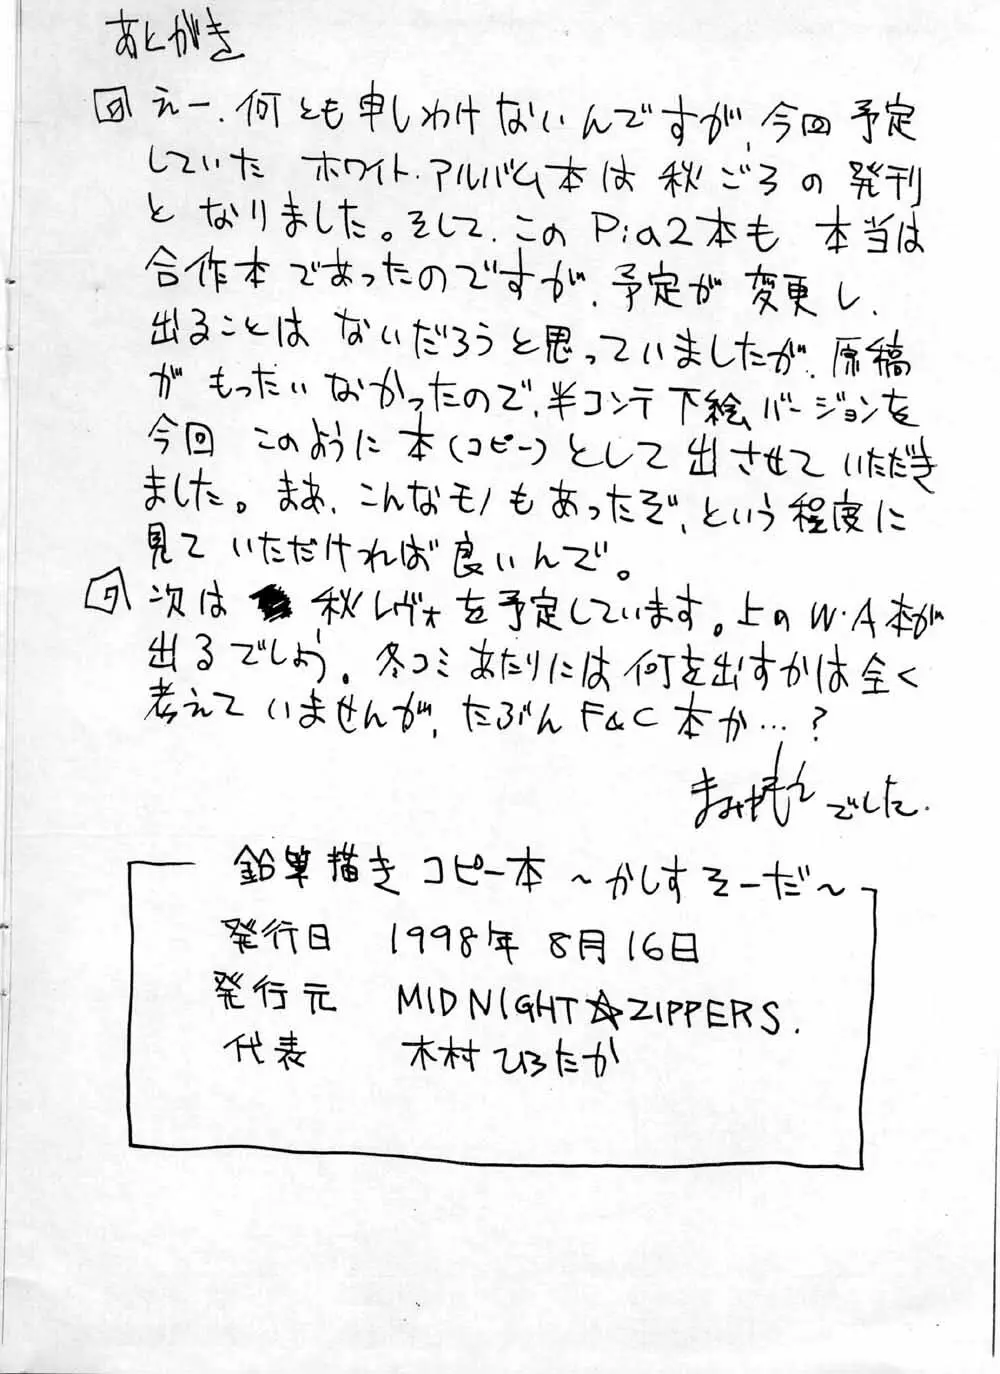 あとがき
えー、何とも申しわけないんですが、今回予定
していた ホワイト・アルバム本は 秋ごろの発刊
となりました。そして、この Pia2本も 本当は
合作本であったのですが、予定が変更し、
出ることは ないだろうと思っていましたが、原稿
が もったいなかったので、半コンテ下絵バージョンを
今回 このように 本(コピー)として出させていただき
ました。まあ、こんなモノもあったぞ、という程度に
見て いただければ良いんで。
次は 秋レヴォを予定しています。上のW.A本が
出るでしょう。冬コミあたりには何を出すかは全く
考えていませんが、たぶんF&C本か…?
でした。
鉛筆描きコピー本 ～かしすそーだ～
発行日 1998年 8月16日
発行元 MIDNIGHT☆ZIPPERS.
代表 木村ひろたか